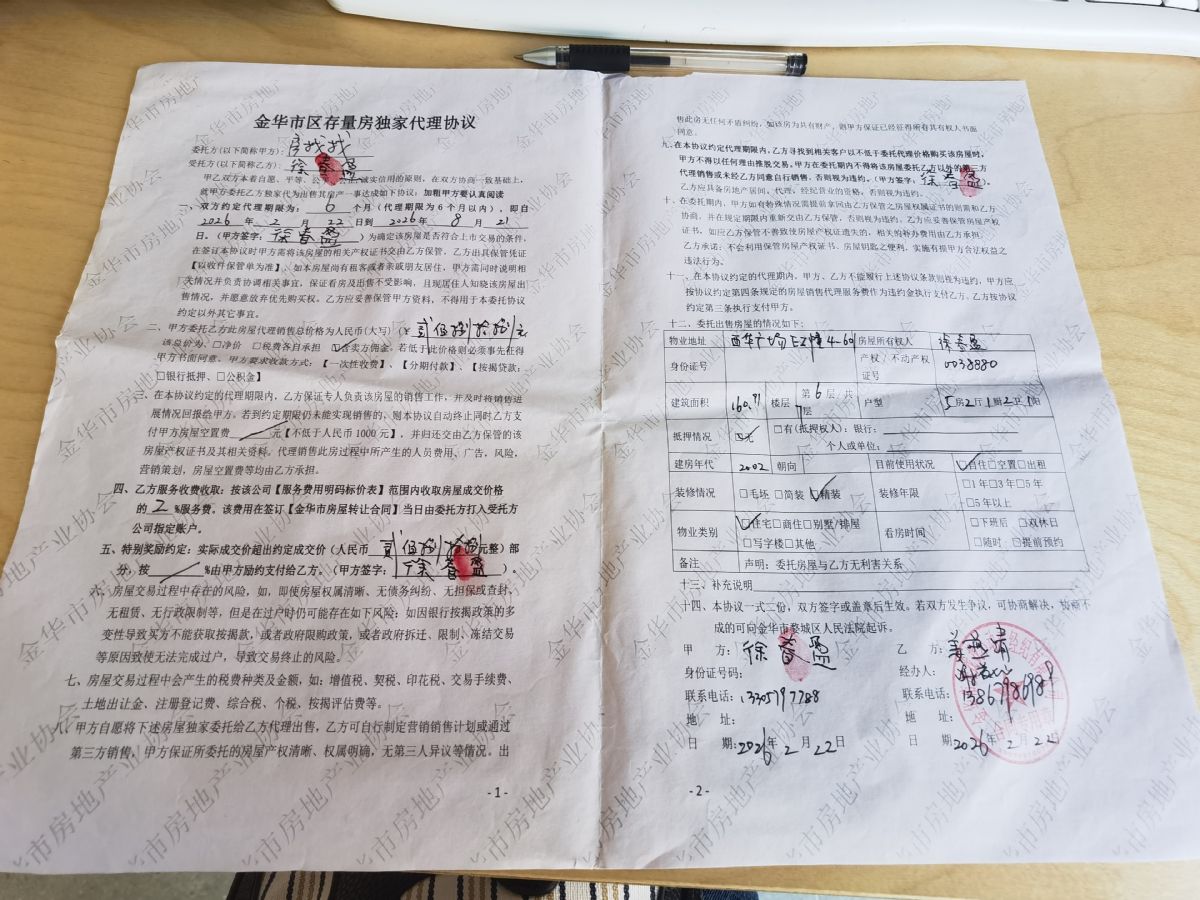 金华市区存量房独家代理协议
委托方(以下简称甲方):房找找
受托方(以下简称乙方):徐春盈
甲乙双方本着自愿、平等、公平、诚实信用的原则,在双方协商一致基础上,
就甲方委托乙方独家代为出售其房产一事达成如下协议:加粗甲方要认真阅读
一、双方约定代理期限为: 6 个月(代理期限为6个月以内),即自
2026 年 2 月 22 日到 2026 年 8 月 21
日。(甲方签字:徐春盈)为确定该房屋是否符合上市交易的条件,
在签订本协议时甲方需将该房屋的相关产权证书交由乙方保管,乙方出具保管凭证
【以收件保管单为准】、如本房屋尚有租客或者亲戚朋友居住,甲方需同时说明相
关情况并负责协调相关事宜,保证看房及出售不受影响,且现居住人知晓该房屋出
售情况,并愿意放弃优先购买权。乙方应妥善保管甲方资料,不得用于本委托协议
约定以外其它事宜。
二、甲方委托乙方此房屋代理销售总价格为人民币(大写)(¥ 贰佰捌拾捌 元
该总价为:□净价 □税费各自承担 ☑含卖方佣金。若低于此价格则必须事先征得
甲方书面同意。甲方要求收款方式:【一次性收费】、【分期付款】、【按揭贷款:
□银行抵押、□公积金】
三、在本协议约定的代理期限内,乙方保证专人负责该房屋的销售工作,并及时将销售进
展情况回报给甲方。若到约定期限仍未能实现销售的、则本协议自动终止同时乙方支
付甲方房屋空置费 元【不低于人民币1000元】,并归还交由乙方保管的该
房屋产权证书及其相关资料。代理销售此房过程中所产生的人员费用、广告,风险,
营销策划,房屋空置费等均由乙方承担。
四、乙方服务收费收取:按该公司【服务费用明码标价表】范围内收取房屋成交价格
的 2 %服务费。该费用在签订【金华市房屋转让合同】当日由委托方打入受托方
公司指定账户。
五、特别奖励约定:实际成交价超出约定成交价(人民币 贰佰捌 元整)部
分,按 %由甲方励约支付给乙方。(甲方签字: 徐春盈)。
六、房屋交易过程中存在的风险,如,即使房屋权属清晰、无债务纠纷、无担保或查封、
无租赁、无行政限制等,但是在过户时仍可能存在如下风险:如因银行按揭政策的多
变性导致买方不能获取按揭款,或者政府限购政策,或者政府拆迁、限制、冻结交易
等原因致使无法完成过户,导致交易终止的风险。
七、房屋交易过程中会产生的税费种类及金额,如:增值税、契税、印花税、交易手续费、
土地出让金、注册登记费、综合税、个税、按揭评估费等。
八、甲方自愿将下述房屋独家委托给乙方代理出售,乙方可自行制定营销销售计划或通过
第三方销售,甲方保证所委托的房屋产权清晰、权属明确,无第三人异议等情况。出
-1-
售此房无任何矛盾纠纷,如该房为共有财产,则甲方保证已经征得所有其有权人书面
同意。
九、在本协议约定代理期限内,乙方寻找到相关客户以不低于委托代理价格购买该房屋时,
甲方不得以任何理由推脱交易。甲方在委托期内不得将该房屋委托乙方以外的第三方
代理销售或未经乙方同意自行销售,否则视为违约。(甲方签字:徐春盈)。
乙方应具备房地产居间、代理、经纪营业的资格,否则视为违约。
十、在委托期内,甲方如有特殊情况需提前拿回由乙方保管之房屋权属证书的则需和乙方
协商,并在规定期限内重新交由乙方保管,否则视为违约。乙方应妥善保管房屋产权
证书,如应乙方保管不善致使房屋产权证遗失的,相关的补办费用由乙方承担。
乙方承诺:不会利用保管房屋产权证书、房屋钥匙之便利,实施有损甲方合法权益之
违法行为。
十一、在本协议约定的代理期内,甲方、乙方不能履行上述协议条款则视为违约,甲方应
按协议约定第四条规定的房屋销售代理服务费作为违约金执行支付乙方,乙方按协议
约定第三条执行支付甲方。
十二、委托出售房屋的情况如下:
物业地址 西华广场E2幢4-601 房屋所有权人 徐春盈
身份证号 产权/不动产权证号 0038880
建筑面积 160.91 楼层 第6层/共 层 户型 5房2厅1厨2卫1阳
抵押情况 ☑无 □有(抵押权人):银行:
个人或单位:
建房年代 2002 朝向 目前使用状况 ☑自住□空置□出租
装修情况 □毛坯 □简装 ☑精装 装修年限 □1年□3年□5年
□5年以上
物业类别 ☑住宅□商住□别墅/排屋
□写字楼□其他 看房时间 □下班后 □双休日
□随时 □提前预约
备注 声明:委托房屋与乙方无利害关系
十三、补充说明
十四、本协议一式二份,双方签字或盖章后生效。若双方发生争议,可协商解决,协商不
成的可向金华市婺城区人民法院起诉。
甲 方:徐春盈 乙 方:
身份证号码: 经办人:
联系电话:13305797788 联系电话:13867986989
地 址: 地 址:
日 期:2026年 2 月 22日 日 期2026年 2月22日
-2-
金华市房地产业协会